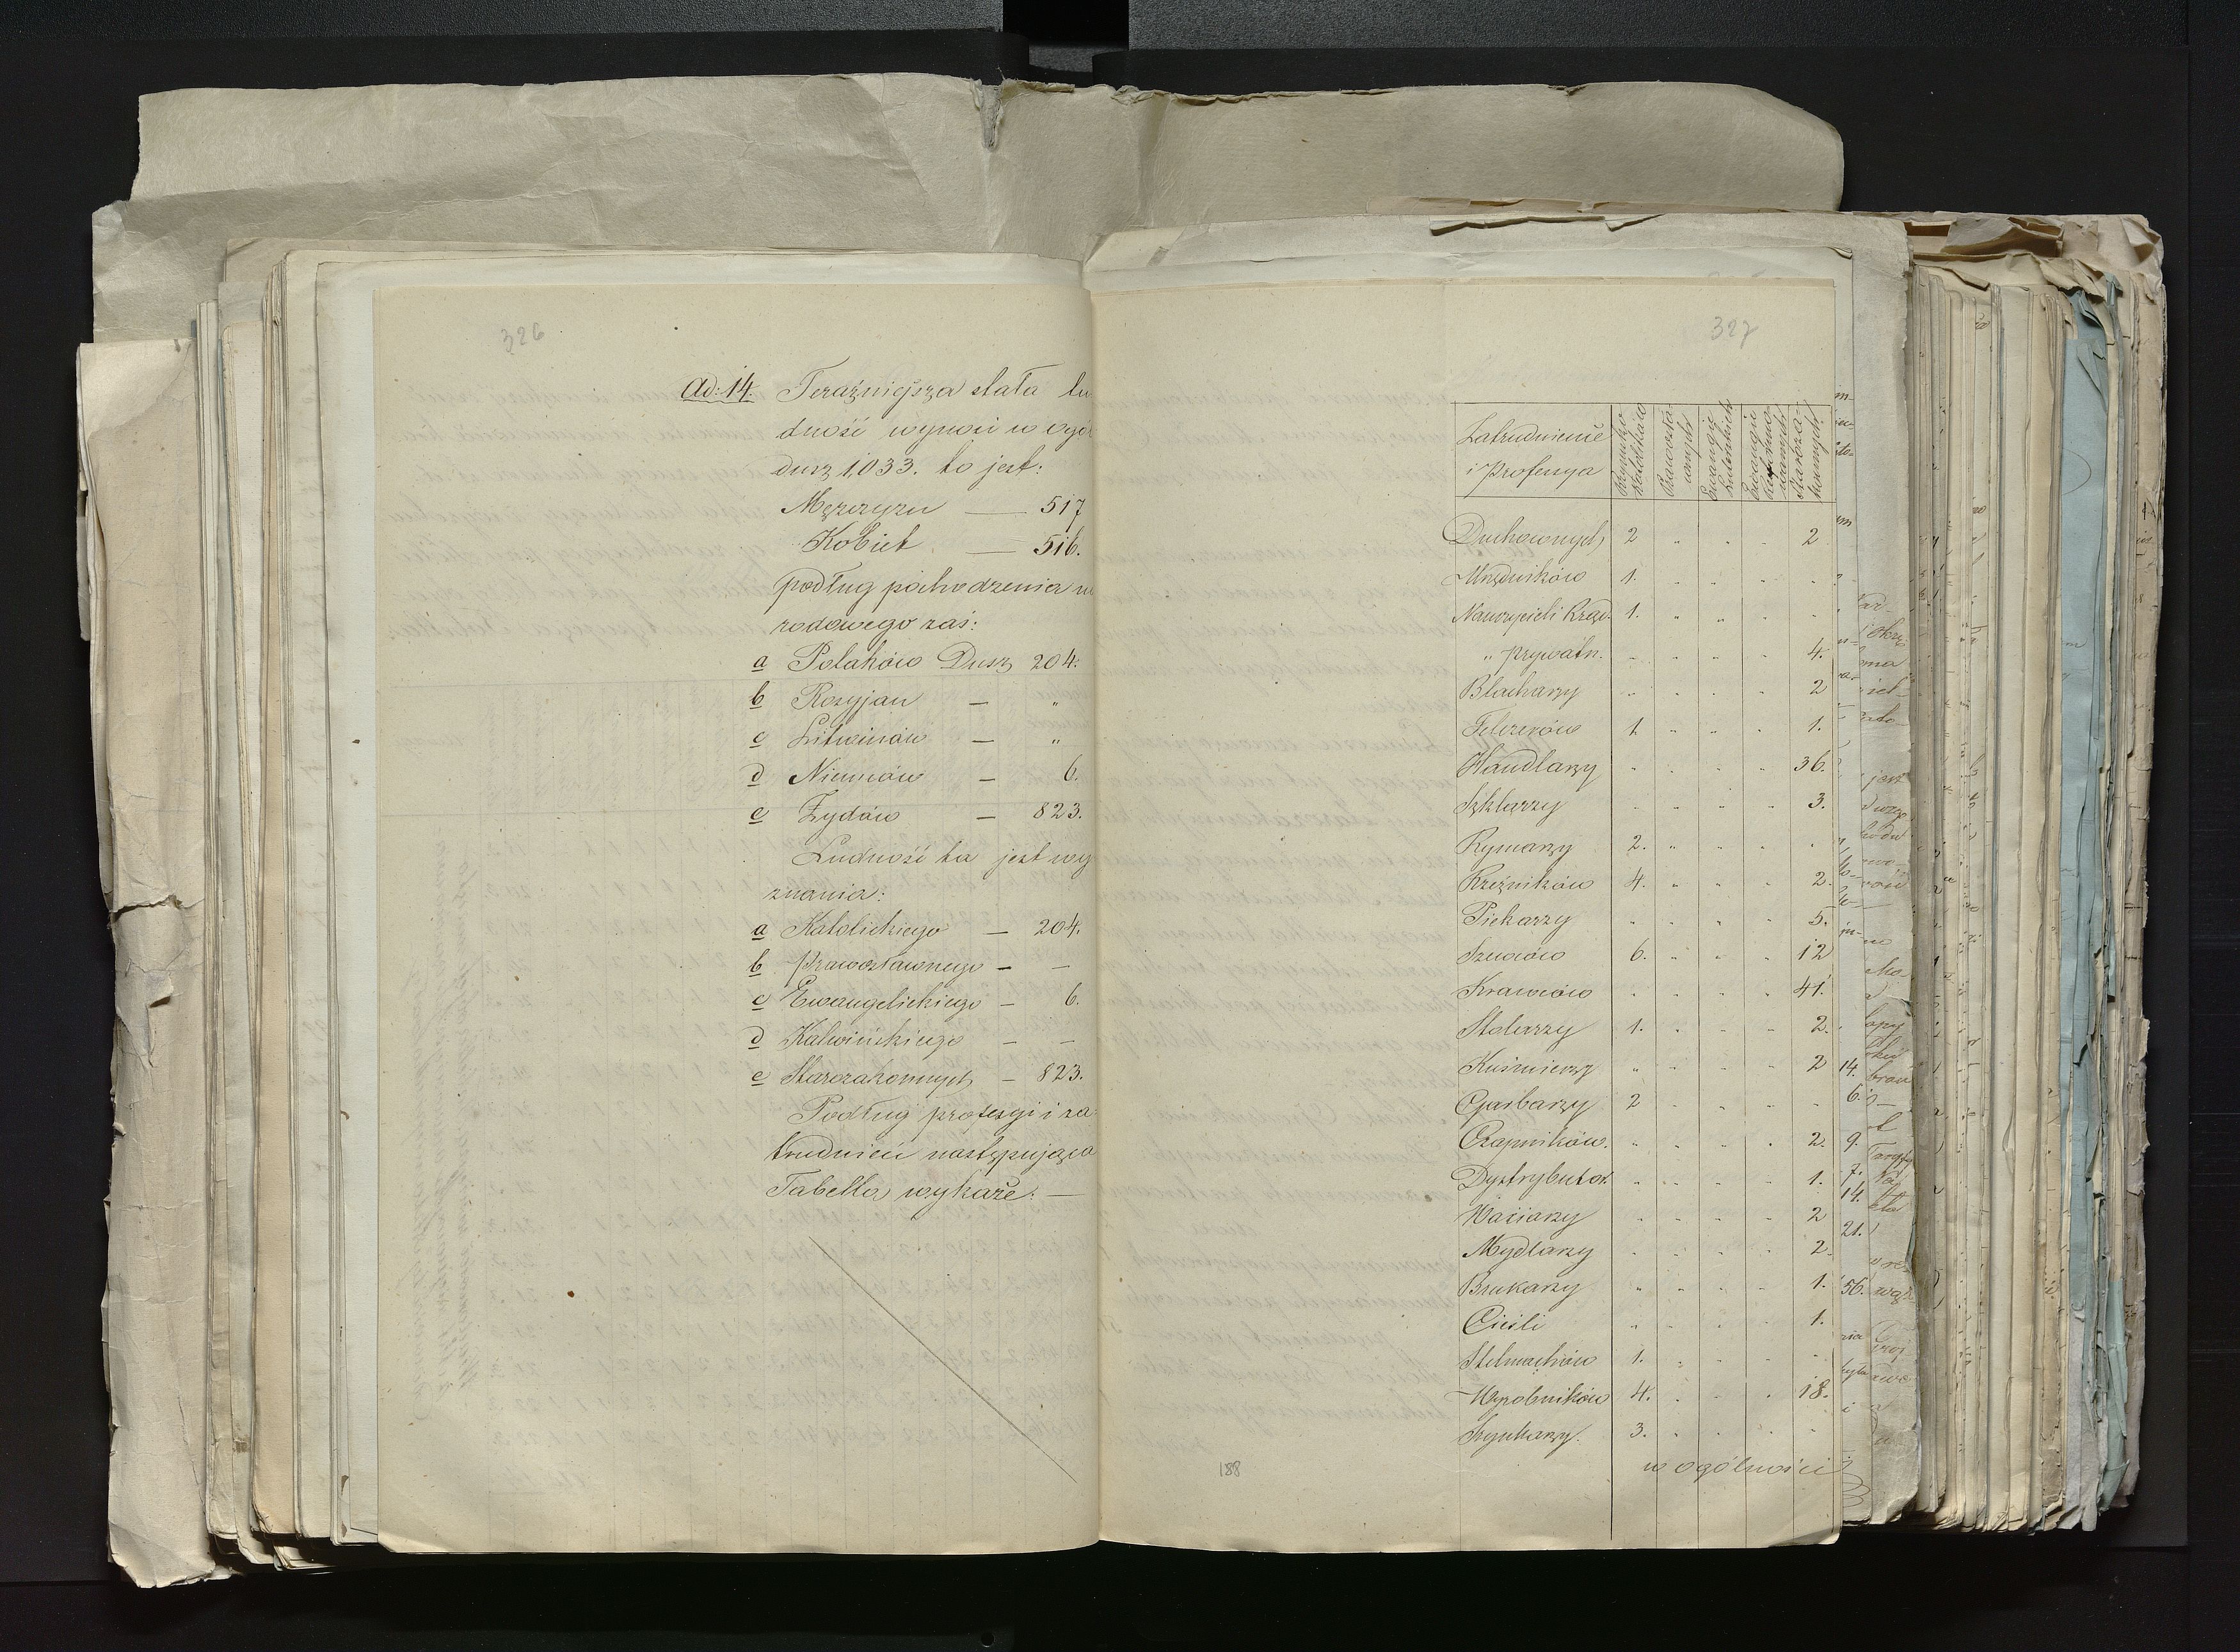 326
Ad: 14. Teraźniejsza stała lu
dność wynosi w ogó
dusz 1,033. to jest:
Mężczyzn — 517
Kobiet — 516.
podług pochodzenia na
rodowego zaś:
a Polaków Dusz 204.
b Rosyjan — "
c Litwinów — "
d Niemców — 6.
e Żydów — 823.
Ludność ta jest wy
znania:
a Katolickiego — 204.
b Prawosławnego — —
c Ewangelickiego — 6.
d Kalwińskiego — —
e Starozakonnych — 823.
Podług profesyi i za
trudnień następująca
Tabella wykaże: —
327
Zatrudnienie i Profesya
Rzymsko Katolików
Prawosławnych
Ewangie Luterskich
Ewangie Reformowanych
Starozakonnych
Duchownych 2 " " 2
Urzędników 1. " " " "
Nauczycieli Rząd. 1. " " " "
" prywatn. " " " " 4.
Blacharzy " " " " 2
Felczerów 1. " " " 1.
Handlarzy " " " " 36.
Szklarzy " " " " 3.
Rymarzy 2. " " " "
Rzeźników 4. " " " 2.
Piekarzy " " " " 5.
Szewców 6. " " " 12
Krawców " " " " 41.
Stolarzy 1. " " " 2.
Kuśmierzy " " " " 2
Garbarzy 2 " " " "
Czapników. " " " " 2.
Dystrybutor. " " " " 1.
Waciarzy " " " " 2
Mydlarzy " " " " 2.
Brukarzy " " " " 1.
Cieśli " " " " 1.
Stelmachów 1. " " " "
Wyrobników 4. " " " 18.
Szynkarzy. 3. " " " "
w ogólności
188